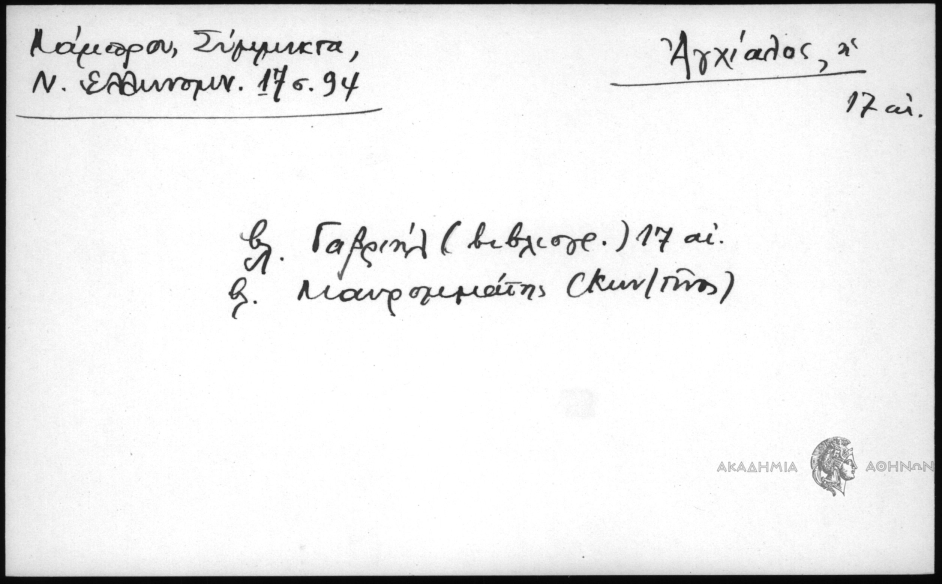 Λάμπρου, Σύμμικτα,
Ν. Ελληνομν. 17 σ. 94
Ἀγχίαλος, ἡ
17 αἰ.
βλ. Γαβριήλ (βιβλιογρ.) 17 αἰ.
βλ. Μαυρομμάτης (Κων/τῖνος)
ΑΚΑΔΗΜΙΑ ΑΘΗΝΩΝ